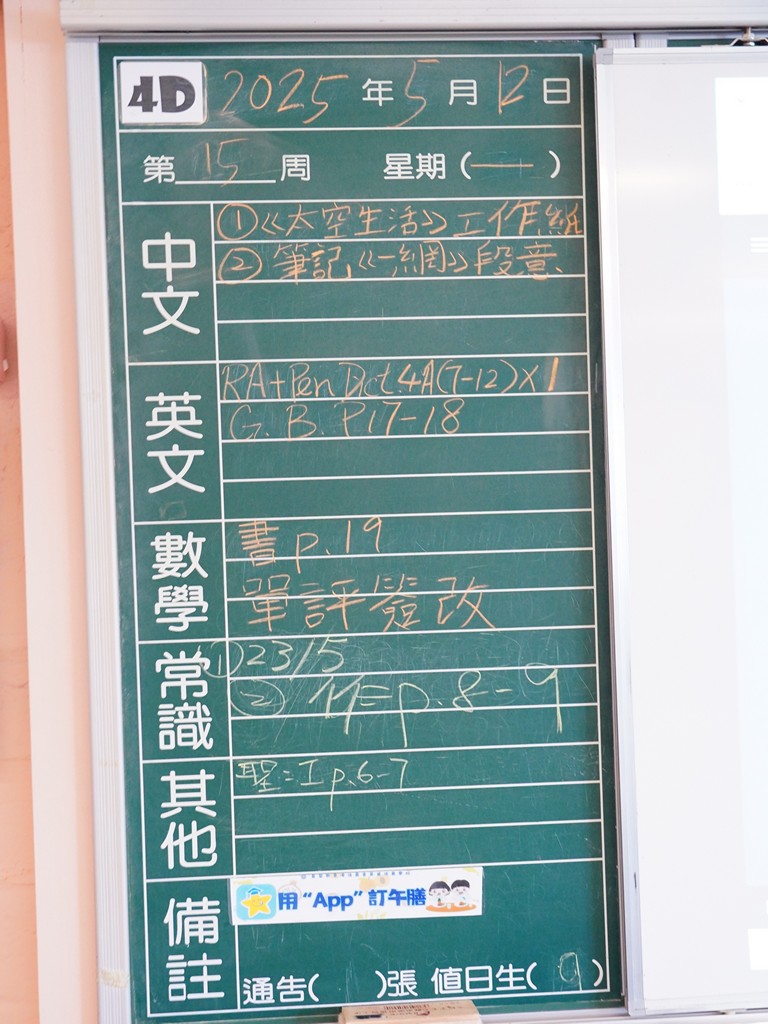 4D 2025年5月12日
第15周 星期(一)
中文
①《太空生活》工作紙
② 筆記《一網》段意
英文
RA+Pen Dict. 4A(7-12)×1
G. B. P.17-18
數學
書p.19
單評簽改
常識
① 23/5
② 作 p.8-9
其他
聖：工p.6-7
備註
用“App”訂午膳
通告( )張 值日生(9)